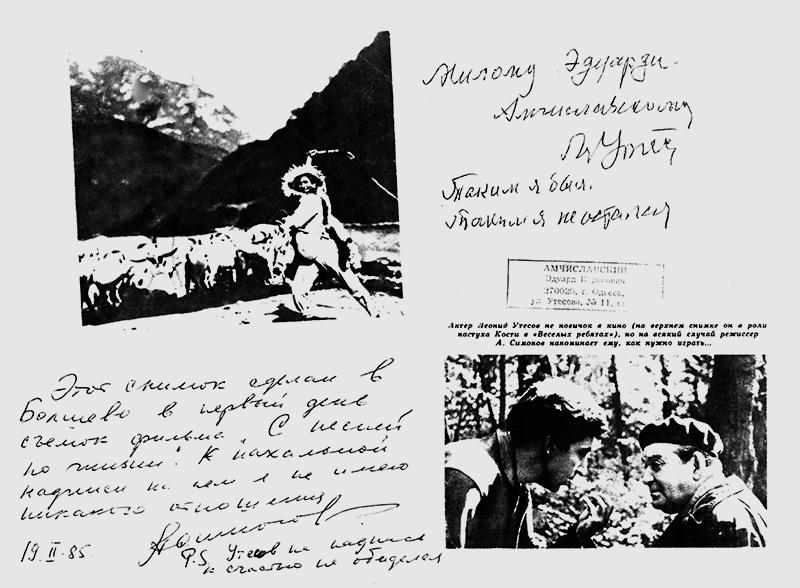 Милому Эдуарду
Амчиславскому
Л Утёсов
Таким я был.
Таким я не остался
АМЧИСЛАВСКИЙ
Эдуард Борисович
270020, г. Одесса,
ул. Утесова, № 11,
Актер Леонид Утесов не новичок в кино (на верхнем снимке он в роли
пастуха Кости в «Веселых ребятах»), но на всякий случай режиссер
А. Симонов напоминает ему, как нужно играть...
Этот снимок сделан в
Болшево в первый день
съемок фильма "С песней
по жизни". К нахальной
надписи на нем я не имею
никакого отношения
19.II.85. АСимонов
P.S Утесов на надпись
к счастью не обиделся